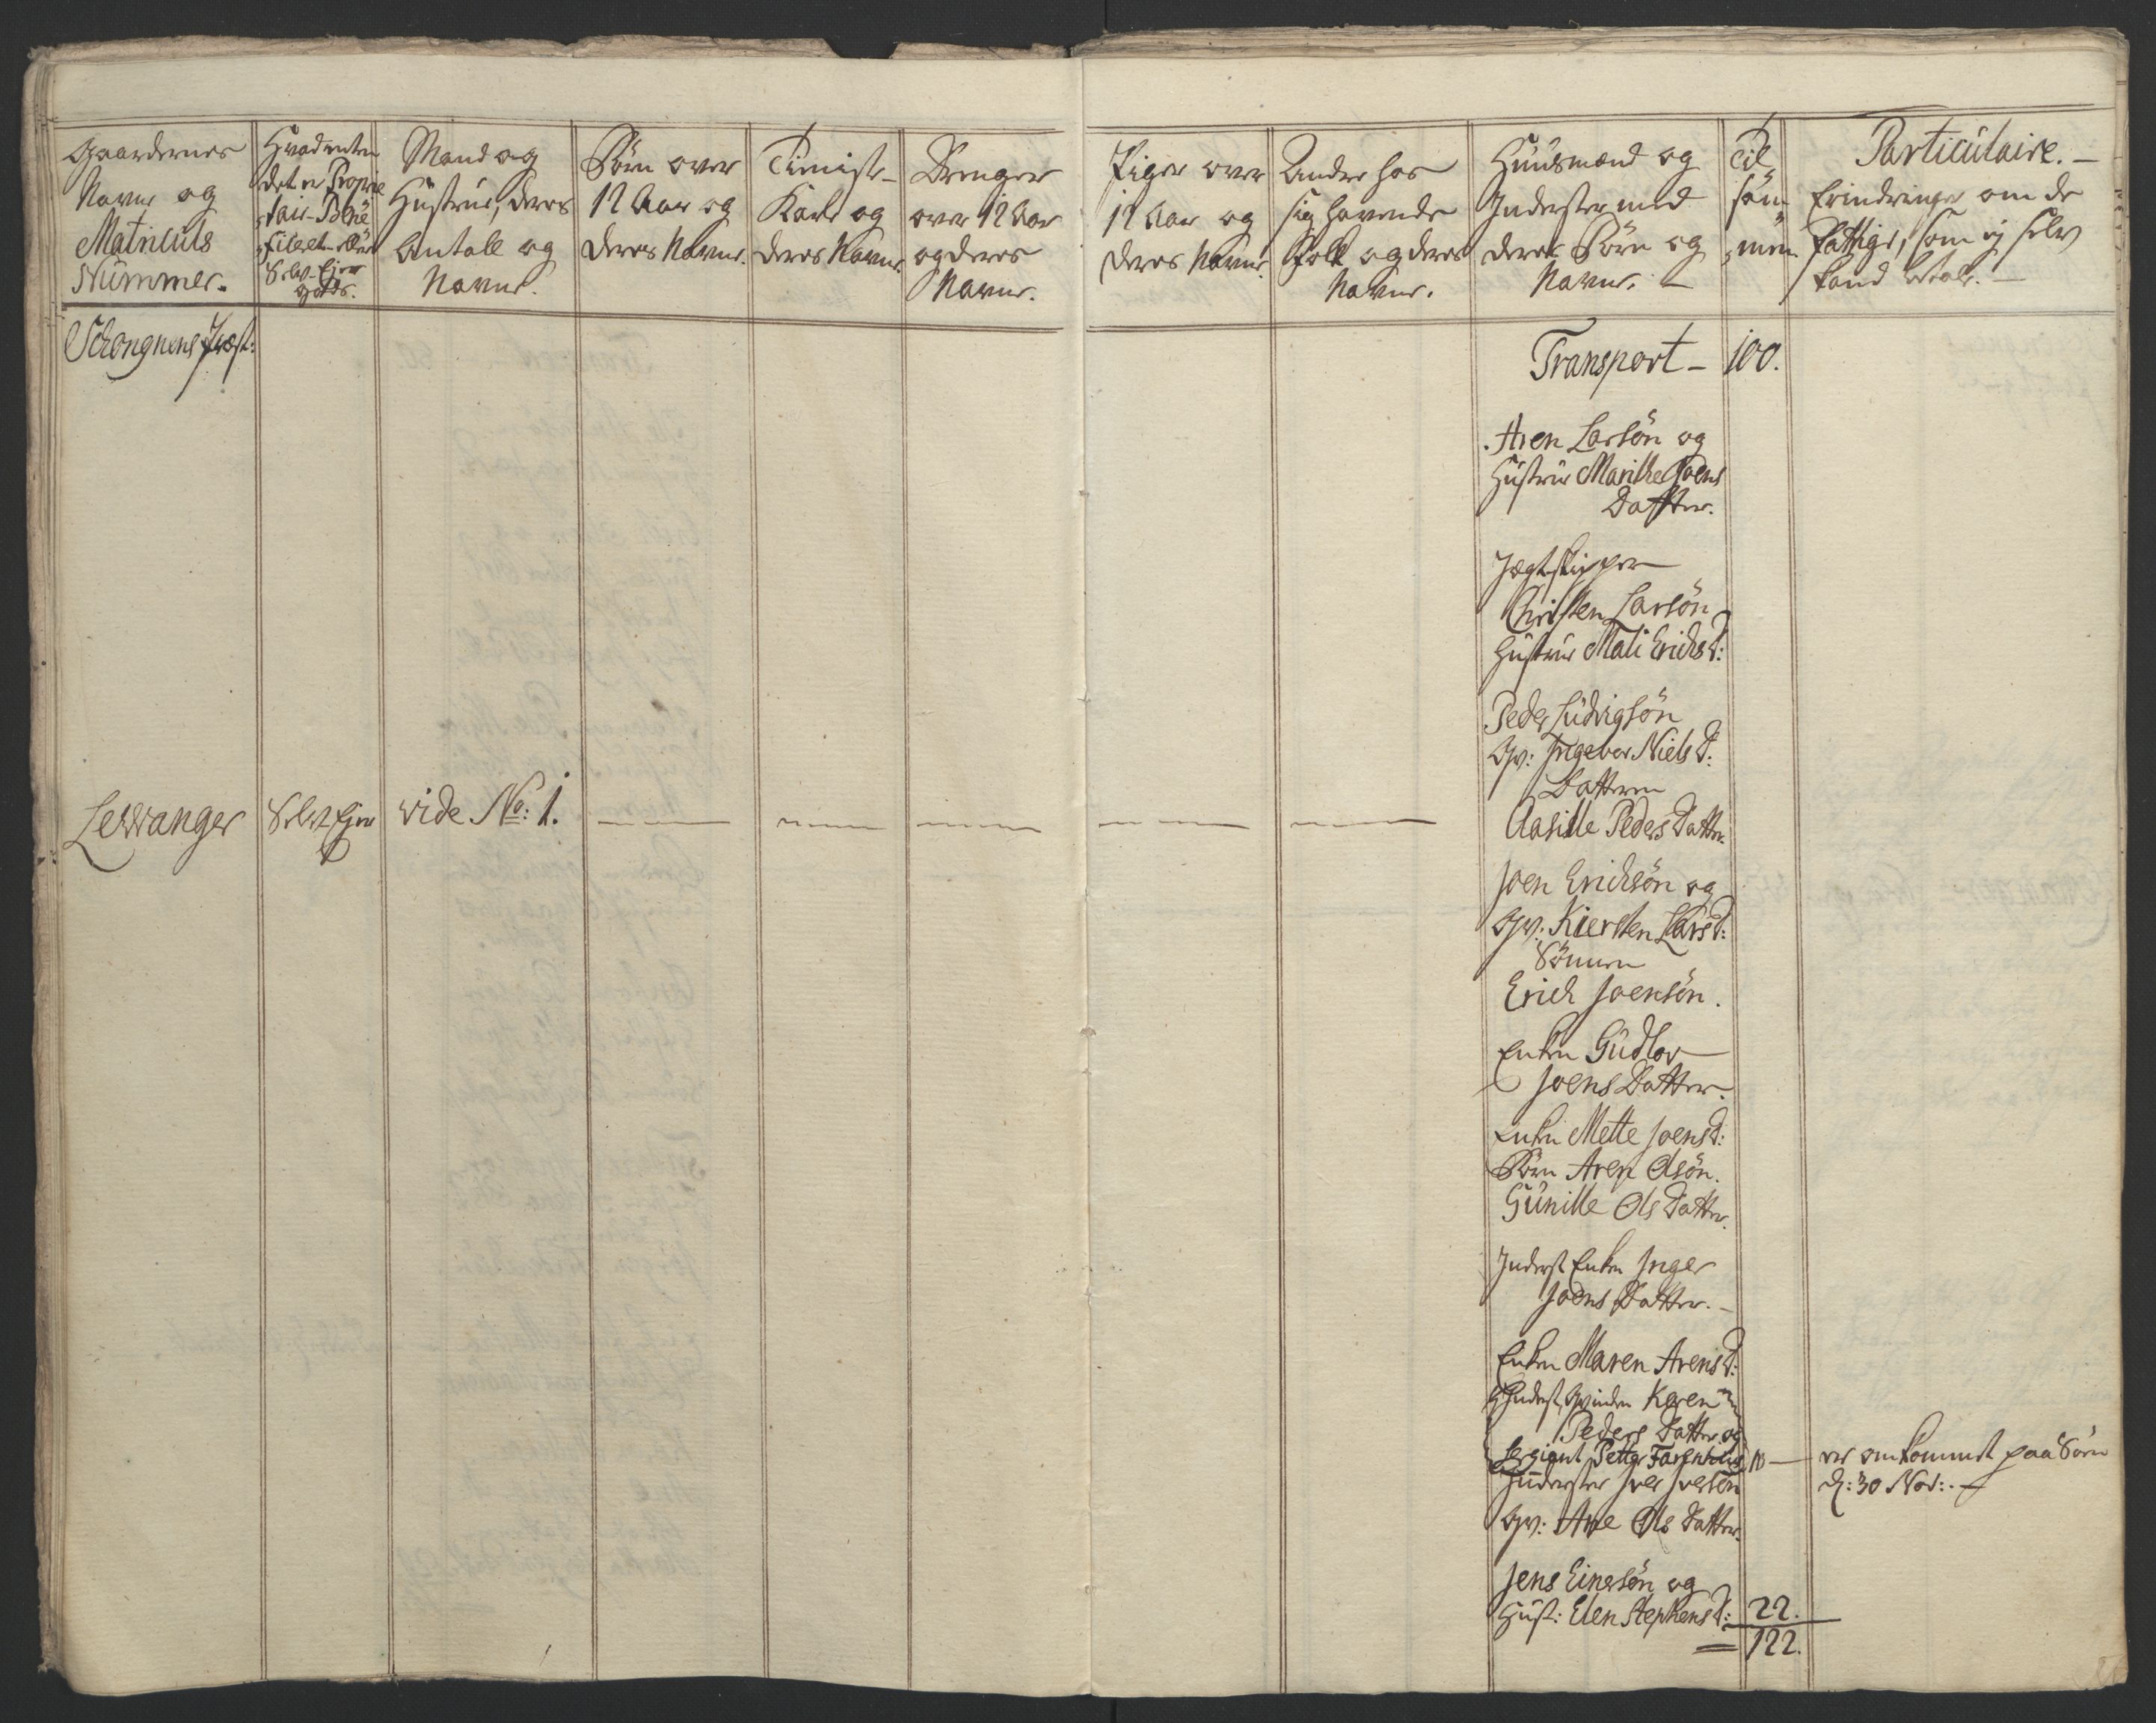 Gaardernes
Navne og
Matriculs
Nummer.
Hvad enten
det er Proprie
tair-Bene
ficeret- eller
Selv-Ejer
Gods.
Mand og
Hustrue, deres
Antall og
Navne.
Börn over
12 Aar og
deres Navne.
Tieniste-
Karle og
deres Navne.
Drenger
over 12 Aar
og deres
Navne.
Piger over
12 Aar og
deres Navne.
Andre hos
sig havende
Folk og deres
Navne.
Huusmænd og
Inderster med
deres Börn og
Navne.
Til
sam-
men.
Particulaire.
Erindringer om de
Fattige, som ej selv
kand betale.
Schongnens Præst:
Transport - 100.
Aren Larsön og
Hustrue Marithe Joens
Datter.
Jægt-skipper
Christen Larsön
Hustrue Mali Erichs D:
Peder Ludvigsön
Qv: Ingebor Niels D:
Datteren
Lewanger Selv-Ejer vide No: 1. Aasille Peders Datter.
Joen Erichsön og
Qv: Kiersten Lars D:
Sönnen
Erich Joensön.
Enken Gudlov
Joens Datter.
Enken Mette Joens D:
Börn Aren Olsön.
Gunille Ols Datter.
Inderst Enken Inger
Joens Datter.
Enken Maren Arens D:
Inderst Qvinden Karen
Peders Datter og
Sergiant Petter Farenhaus
N - er omkommet paa Söen
d: 30 Nov:
Inderster Iver Iversön
Qv: Ane Ols Datter.
Jens Einersön og
Hust: Elen Stephens D: 22.
122.